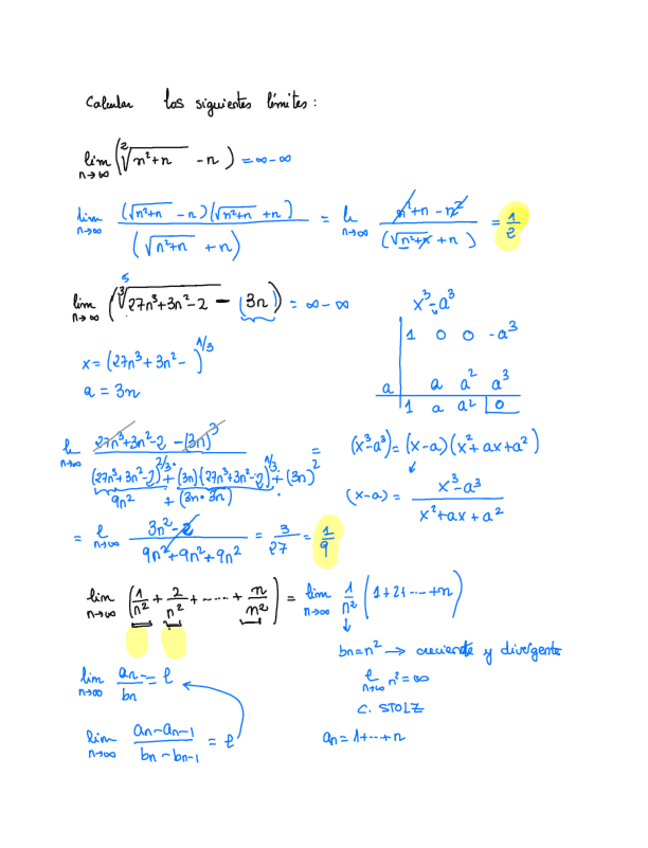 Calcular los siguientes límites:
lim n→∞ (²√(n²+n) - n) = ∞-∞
lim n→∞ ((√(n²+n) - n)(√(n²+n) + n)) / (√(n²+n) + n) = l n→∞ (n²+n - n²) / (√(n²+n) + n) = 1/2
lim n→∞ (³√(27n³+3n²-2) - (3n)) = ∞-∞
x³-a³
1 0 0 -a³
x = (27n³+3n²- )^1/3
a = 3n
a a a² a³
1 a a² 0
l n→∞ (27n³+3n²-2 - (3n)³) / ((27n³+3n²-2)^2/3 + (3n)(27n³+3n²-2)^1/3 + (3n)²) =
9n² + (3n·3n)
(x³-a³) = (x-a)(x²+ax+a²)
(x-a) = (x³-a³) / (x²+ax+a²)
= l n→∞ (3n²-2) / (9n²+9n²+9n²) = 3/27 = 1/9
lim n→∞ (1/n² + 2/n² + ---- + n/n²) = lim n→∞ 1/n² (1+2+ --- +n)
↓
bn=n² → creciente y divergente
lim n→∞ an/bn = l
l n→∞ n² = ∞
C. STOLZ
lim n→∞ (an-an-1) / (bn-bn-1) = l
an = 1+---+n